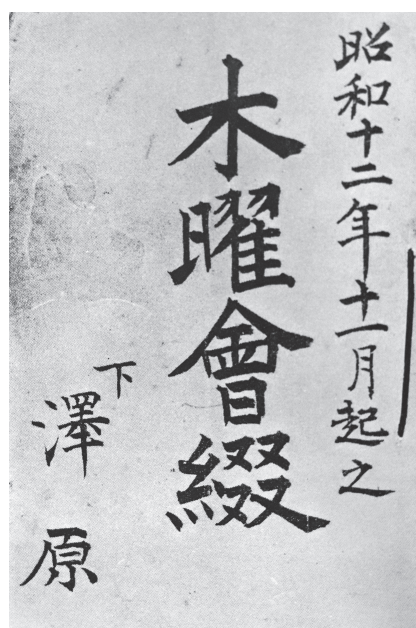 昭和十二年十一月起之
木曜會綴
下
澤原